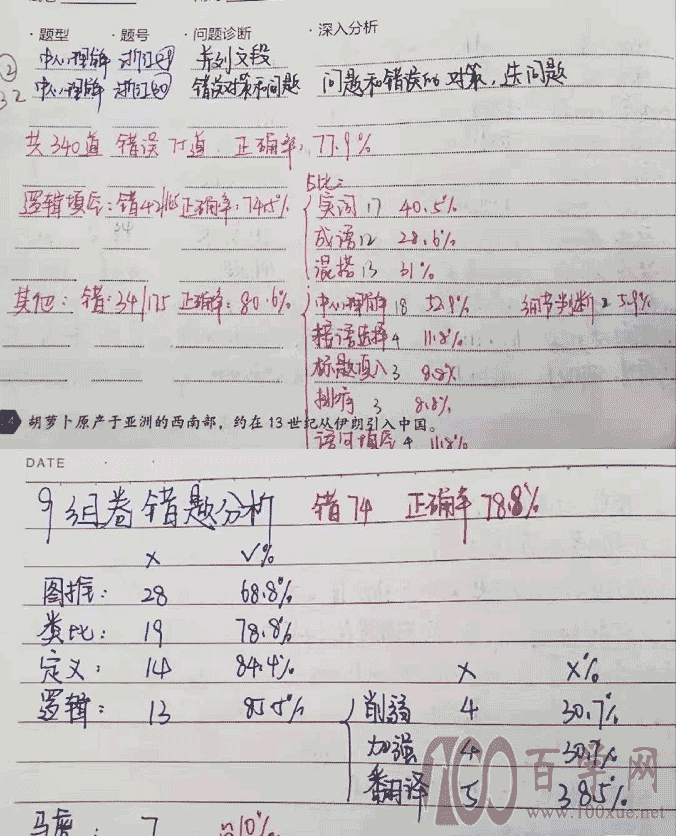 · 题型 · 题号 · 问题诊断 · 深入分析
② 中心理解 并列文段
32 中心理解 错误对策和问题 问题和错误的对策,选问题
共340道 错误75道 正确率:77.9%
占比:
逻辑填空:错42/165 正确率:74.5% 实词 17 40.5%
34 成语 12 28.6%
混搭 13 31%
其他:错:34/175 正确率:80.6% 中心理解 18 52.9% 细节判断 2 5.9%
接语选择 4 11.8%
标题填入 3 8.8%
排序 3 8.8%
胡萝卜原产于亚洲的西南部,约在13世纪从伊朗引入中国。
语句填空 4 11.8%
DATE
9组卷错题分析 错74 正确率78.8%
× √%
图推: 28 68.8%
类比: 19 78.8%
定义: 14 84.4% × ×%
逻辑: 13 85.5% 削弱 4 30.7%
加强 4 30.7%
翻译 5 38.5%
马虎: 7 10%
100百学网
www.100xue.net